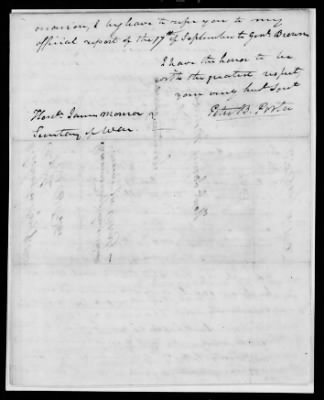 I beg leave to refer you to my
official report of the 17th of September to Genl Brown
I have the honor to be
with the greatest respect,
your very hul Servt
Peter B. Porter
Honl. James Monroe
Secretary of War.